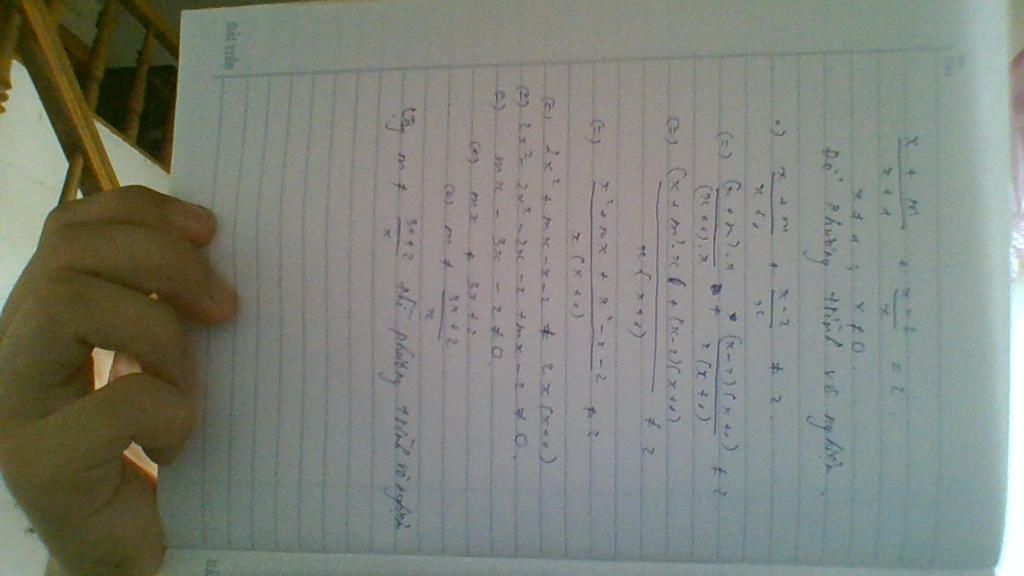 x + m / x + 1 + x - 2 / x = 2.
x ≠ 1 ; x ≠ 0.
Để phương trình vô nghiệm.
=) x + m / x + 1 + x - 2 / x ≠ 2.
(=) (x + m).x / (x + 1).x + (x - 2)(x + 1) / x(x + 1) ≠ 2
(=) (x + m).x + (x - 2)(x + 1) / x(x + 1) ≠ 2
(=) x² + mx + x² - x - 2 / x(x + 1) ≠ 2
(=) 2x² + mx - x - 2 ≠ 2x(x + 1)
(=) 2x² - 2x² - 2x - x + mx - 2 ≠ 0
(=) mx - 3x - 2 ≠ 0
(=) mx ≠ 3x + 2
(=) m ≠ 3x + 2 / x
Vậy m ≠ 3x + 2 / x thì phương trình vô nghiệm
BÀI TIẾN